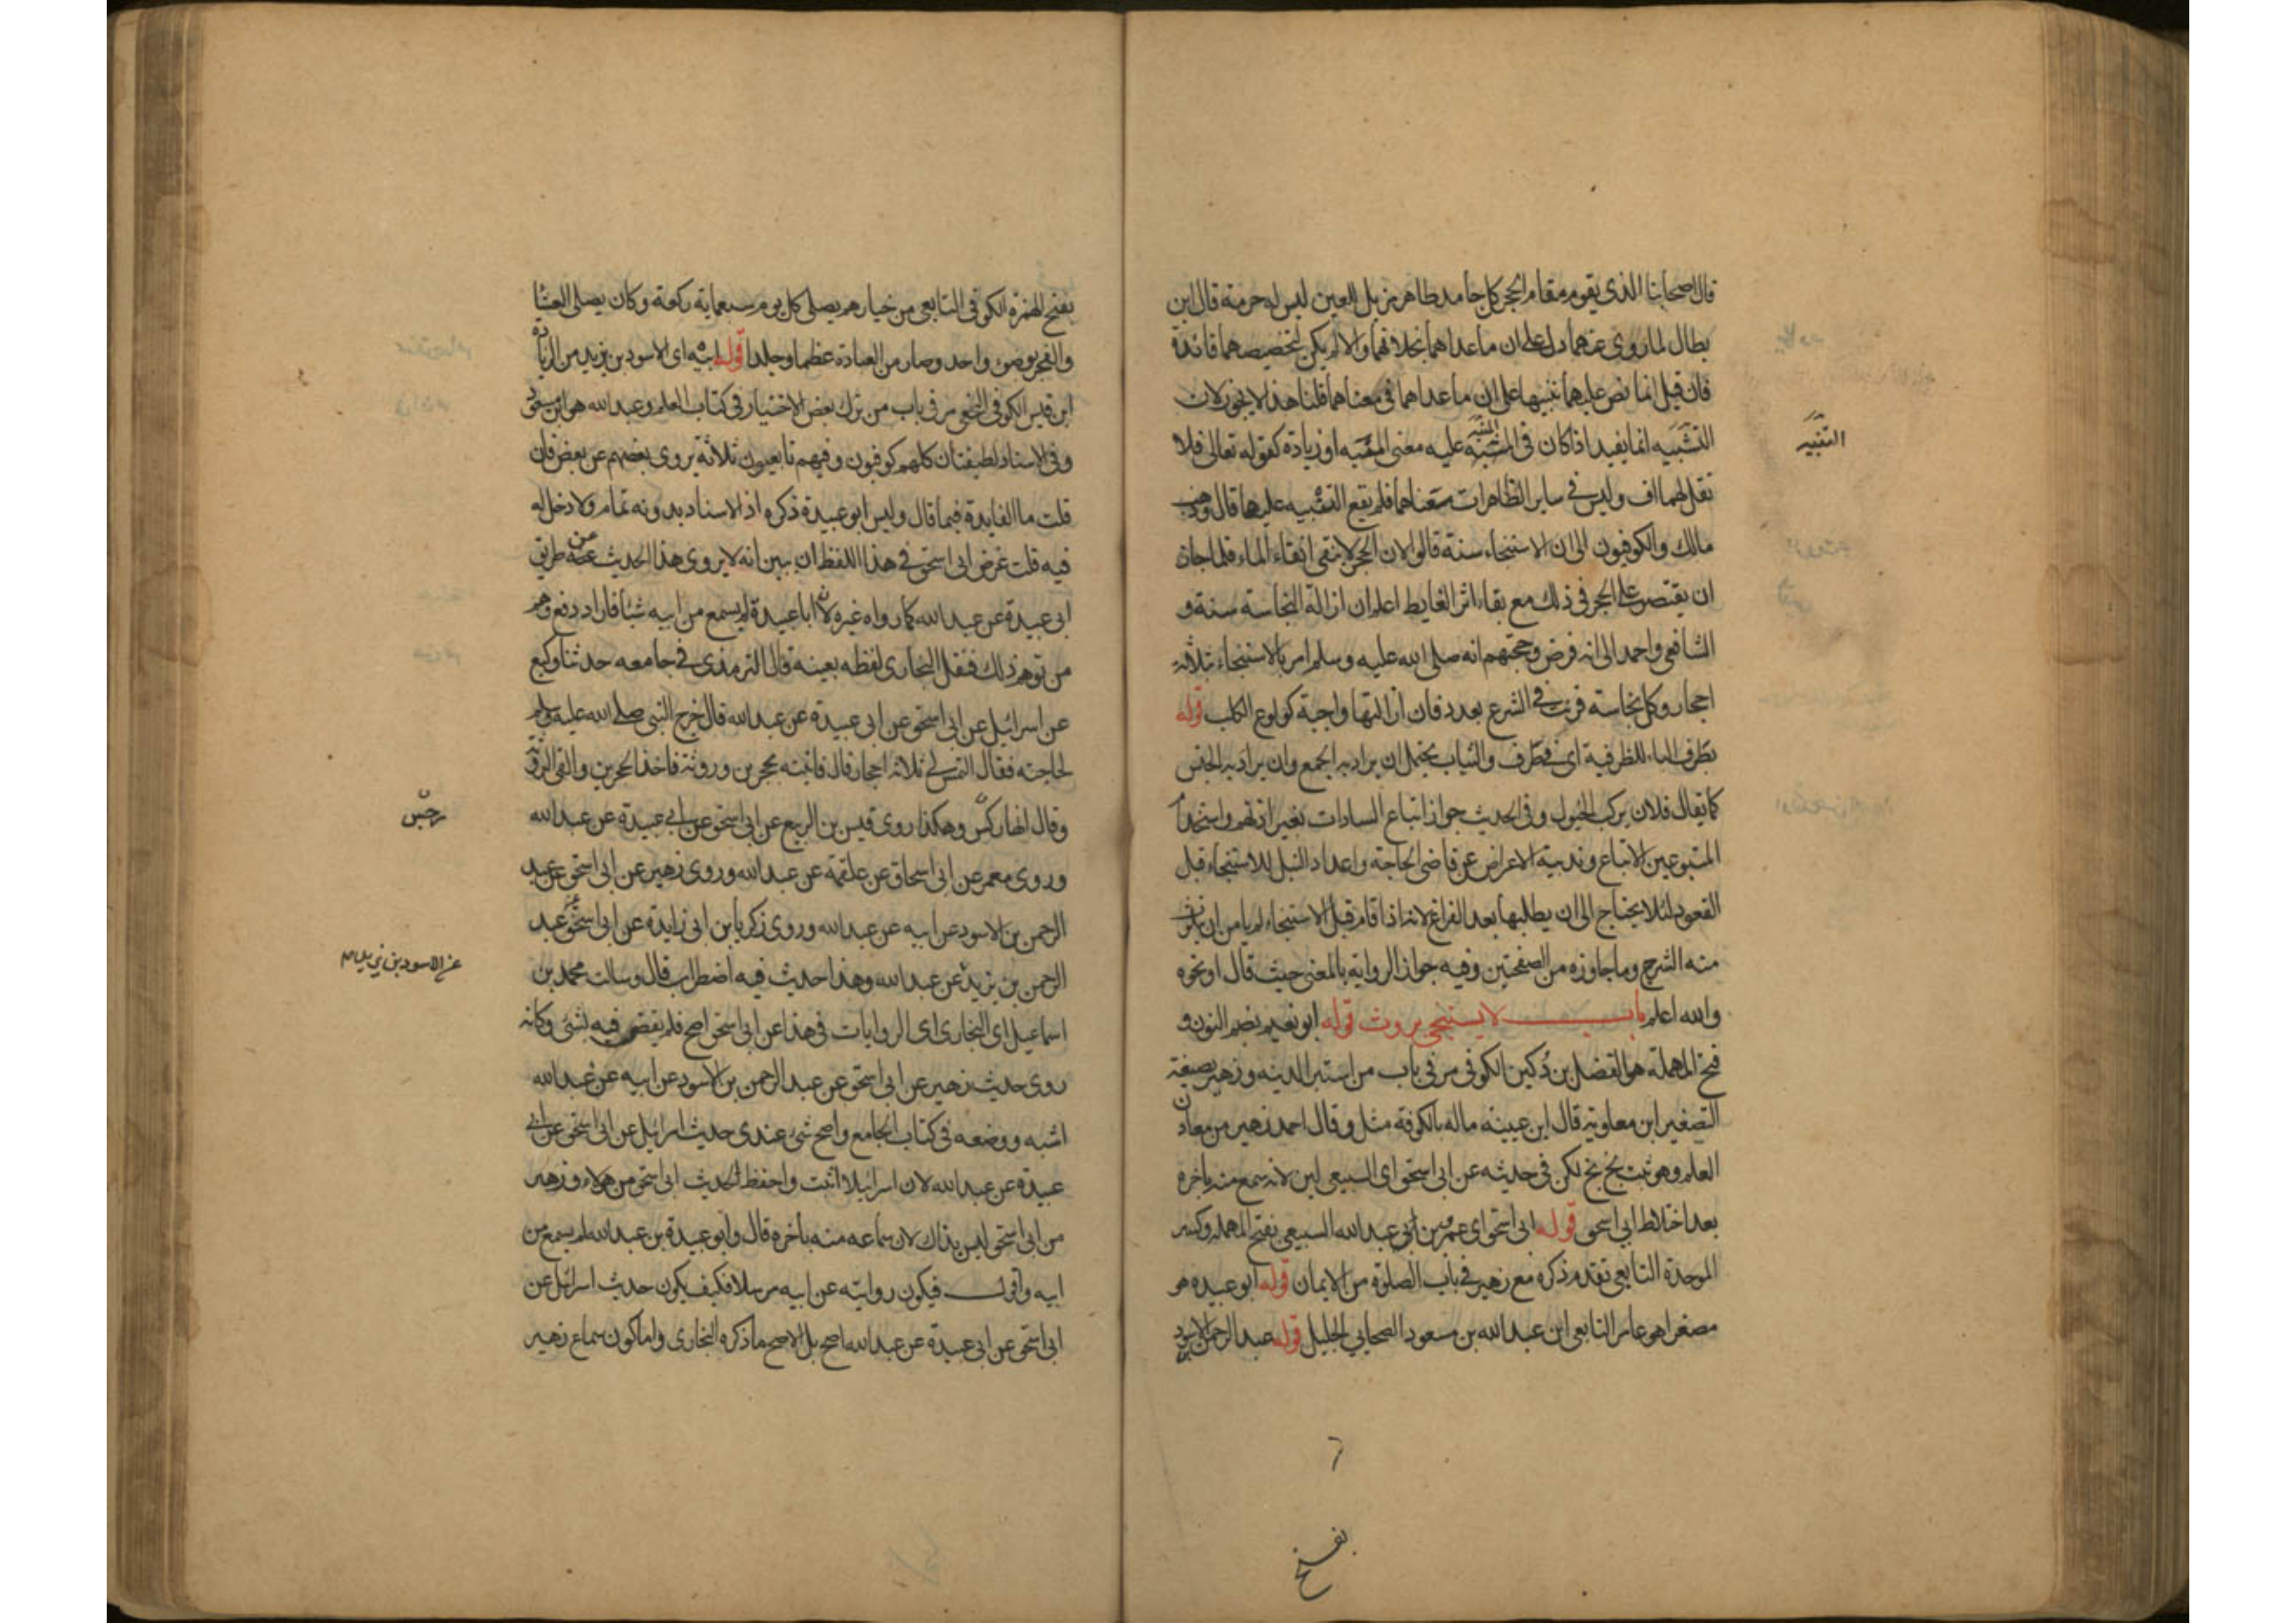 قال اصحابنا الذى يقوم مقام الحجر كل جامد طاهر مزيل للعين ليس له حرمة قال ابن
بطال لما روى عنهما دل على ان ما عداهما بخلافهما والا لم يكن لتخصيصهما فائدة
فان قيل انما نص عليهما تنبيها على ان ما عداهما فى معناهما قلنا هذا لا يجوز لان
التشبيه انما يفيد اذا كان فى المشبه عليه معنى المشبه او زيادة كقوله تعالى فلا
التنبيه
تقل لهما اف وليس فى ساير الطاهرات معناهما فلم يقع التشبيه عليها قال وذهب
مالك والكوفيون الى ان الاستنجاء سنة قالوا لان الحجر لا ينقى انقاء الماء فلما جاز
ان يقتصر على الحجر فى ذلك مع بقاء اثر الغايط اعلم ان ازالة النجاسة سنة و
الشافعى واحمد الى انه فرض وحجتهم انه صلى الله عليه وسلم امر بالاستنجاء بثلاثة
احجار وكل نجاسة قرنت فى الشرع بعدد فان ازالتها واجبة كولوغ الكلب قوله
بطرف الباء للظرفية اى فى طرف والثياب يحتمل ان يراد به الجمع وان يراد به الجنس
كما يقال فلان يركب الخيول وفى الحديث جواز اتباع السادات بغير اذنهم واستخدام
المتبوعين الاتباع وندبية الاعراض عن قاضى الحاجة واعداد النبل للاستنجاء قبل
القعود لئلا يحتاج الى ان يطلبها بعد الفراغ لانه اذا قام قبل الاستنجاء لم يامن ان يترشش
منه الشرج وما جاوزه من الصفحتين وفيه جواز الرواية بالمعنى حيث قال او نحوه
والله اعلم باب لا يستنجى بروث قوله ابو نعيم بضم النون و
فتح المهملة هو الفضل بن دُكين الكوفى مر فى باب من استبرا لدينه وزهير بصيغة
التصغير ابن معاوية قال ابن عيينة ما له بالكوفة مثل وقال احمد زهير من معادن
العلم وهو ثبت بخ بخ لكن فى حديثه عن ابى اسحق اى السبيعى لين لانه سمع منه باخره
بعد اختلاط ابى اسحق قوله ابى اسحق اى عمرو بن ابى عبد الله السبيعى بفتح المهملة وكسر
الموحدة التابعى تقدم ذكره مع زهير فى باب الصلوة من الايمان قوله ابو عبيده هو
مصغرا هو عامر التابعى ابن عبد الله بن مسعود الصحابى الجليل قوله عبد الرحمن الاسود
بفتح
بفتح الهمزة الكوفى التابعى من خيارهم يصلى كل يوم سبعماية ركعة وكان يصلى العشا
والفجر بوضوء واحد وصار من العبادة عظما وجلدا قوله ابيه اى الاسود بن يزيد من الزيادة
ابن قيس الكوفى النخعى مر فى باب من ترك بعض الاختيار فى كتاب العلم وعبد الله هو ابن مسعود
وفى الاسناد لطيفتان كلهم كوفيون وفيهم تابعيون ثلاثة يروى بعضهم عن بعض فان
قلت ما الفايدة فيما قال وليس ابو عبيدة ذكره اذ الاسناد بدونه تمام ولا دخل له
فيه قلت غرض ابى اسحق فى هذا اللفظ ان يبين انه لا يروى هذا الحديث عنه من طريق
ابى عبيدة عن عبد الله كما رواه غيره لان ابا عبيدة لم يسمع من ابيه شيئا فاراد دفع وهم
من توهم ذلك فنقل البخارى لفظه بعينه قال الترمذى فى جامعه حدثنا وكيع
عن اسرائيل عن ابى اسحق عن ابى عبيدة عن عبد الله قال خرج النبى صلى الله عليه وسلم
لحاجته فقال التمس لى ثلاثة احجار قال فاتيته بحجرين وروثة فاخذ الحجرين والقى الروثة
وقال انها ركس وهكذا روى قيس بن الربيع عن ابى اسحق عن ابى عبيدة عن عبد الله
رجس
وروى معمر عن ابى اسحاق عن علقمة عن عبد الله وروى زهير عن ابى اسحق عن عبد
الرحمن بن الاسود عن ابيه عن عبد الله وروى زكريا بن ابى زايدة عن ابى اسحق عن عبد
الرحمن بن يزيد عن عبد الله وهذا حديث فيه اضطراب قال وسالت محمد بن
عن الاسود بن يزيد
اسماعيل اى البخارى اى الروايات فى هذا عن ابى اسحق اصح فلم يقض فيه بشئ وكانه
روى حديث زهير عن ابى اسحق عن عبد الرحمن بن الاسود عن ابيه عن عبد الله
اشبه ووضعه فى كتاب الجامع واصح شئ عندى حديث اسرائيل عن ابى اسحق عن ابى
عبيدة عن عبد الله لان اسرائيل اثبت واحفظ لحديث ابى اسحق من هولاء وزهير
من ابى اسحق ليس بذاك لان سماعه منه باخره قال وابو عبيدة بن عبد الله لم يسمع من
ابيه واقول فيكون روايته عن ابيه مرسلا فكيف يكون حديث اسرائيل عن
ابى اسحق عن ابى عبيدة عن عبد الله اصح بل الاصح ما ذكره البخارى واما كون سماع زهير